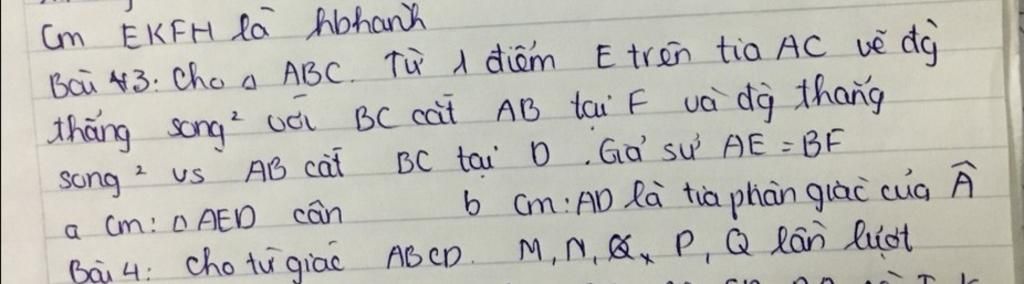 Cm EKFH là hbhanh
Bài 3: Cho △ ABC. Từ 1 điểm E trên tia AC vẽ đg
thẳng song² với BC cắt AB tại F và đg thẳng
song² vs AB cắt BC tại D. Giả sử AE = BF
a Cm: △ AED cân b Cm: AD là tia phân giác của Â
Bài 4: Cho tứ giác ABCD. M, N, P, Q lần lượt